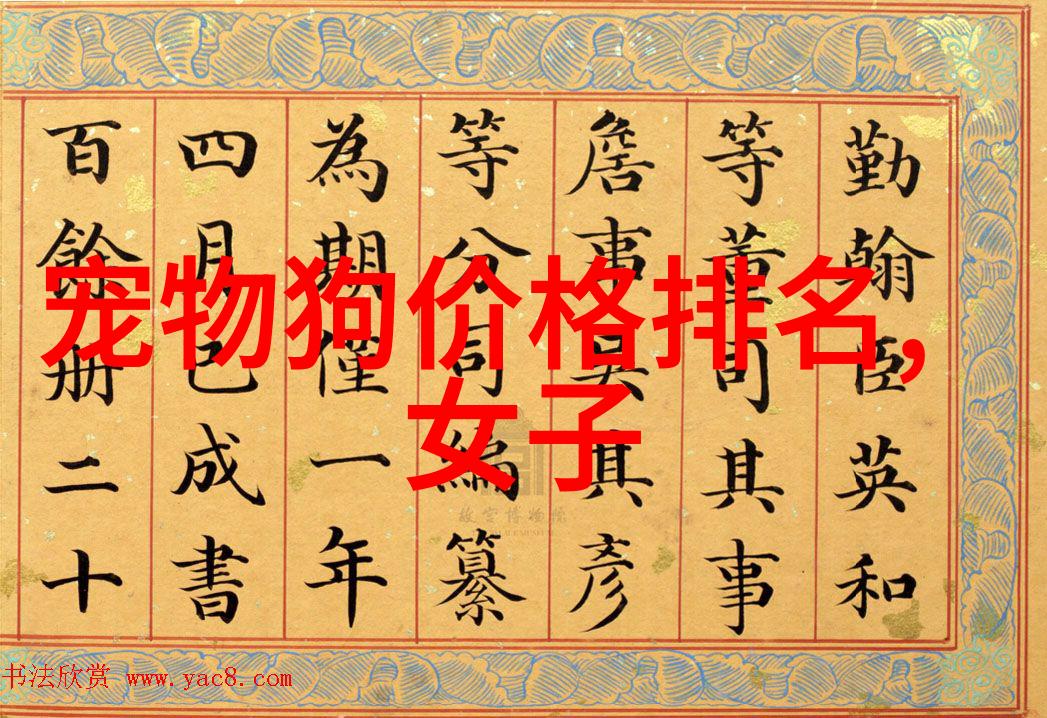 勤翰臣英和
等董司其事
詹事吳其彥
等分司編纂
為期僅一年
四月已成書
百餘册二十
宠物狗价格排名,
女子
故宫博物院
书法欣赏 www.yac8.com